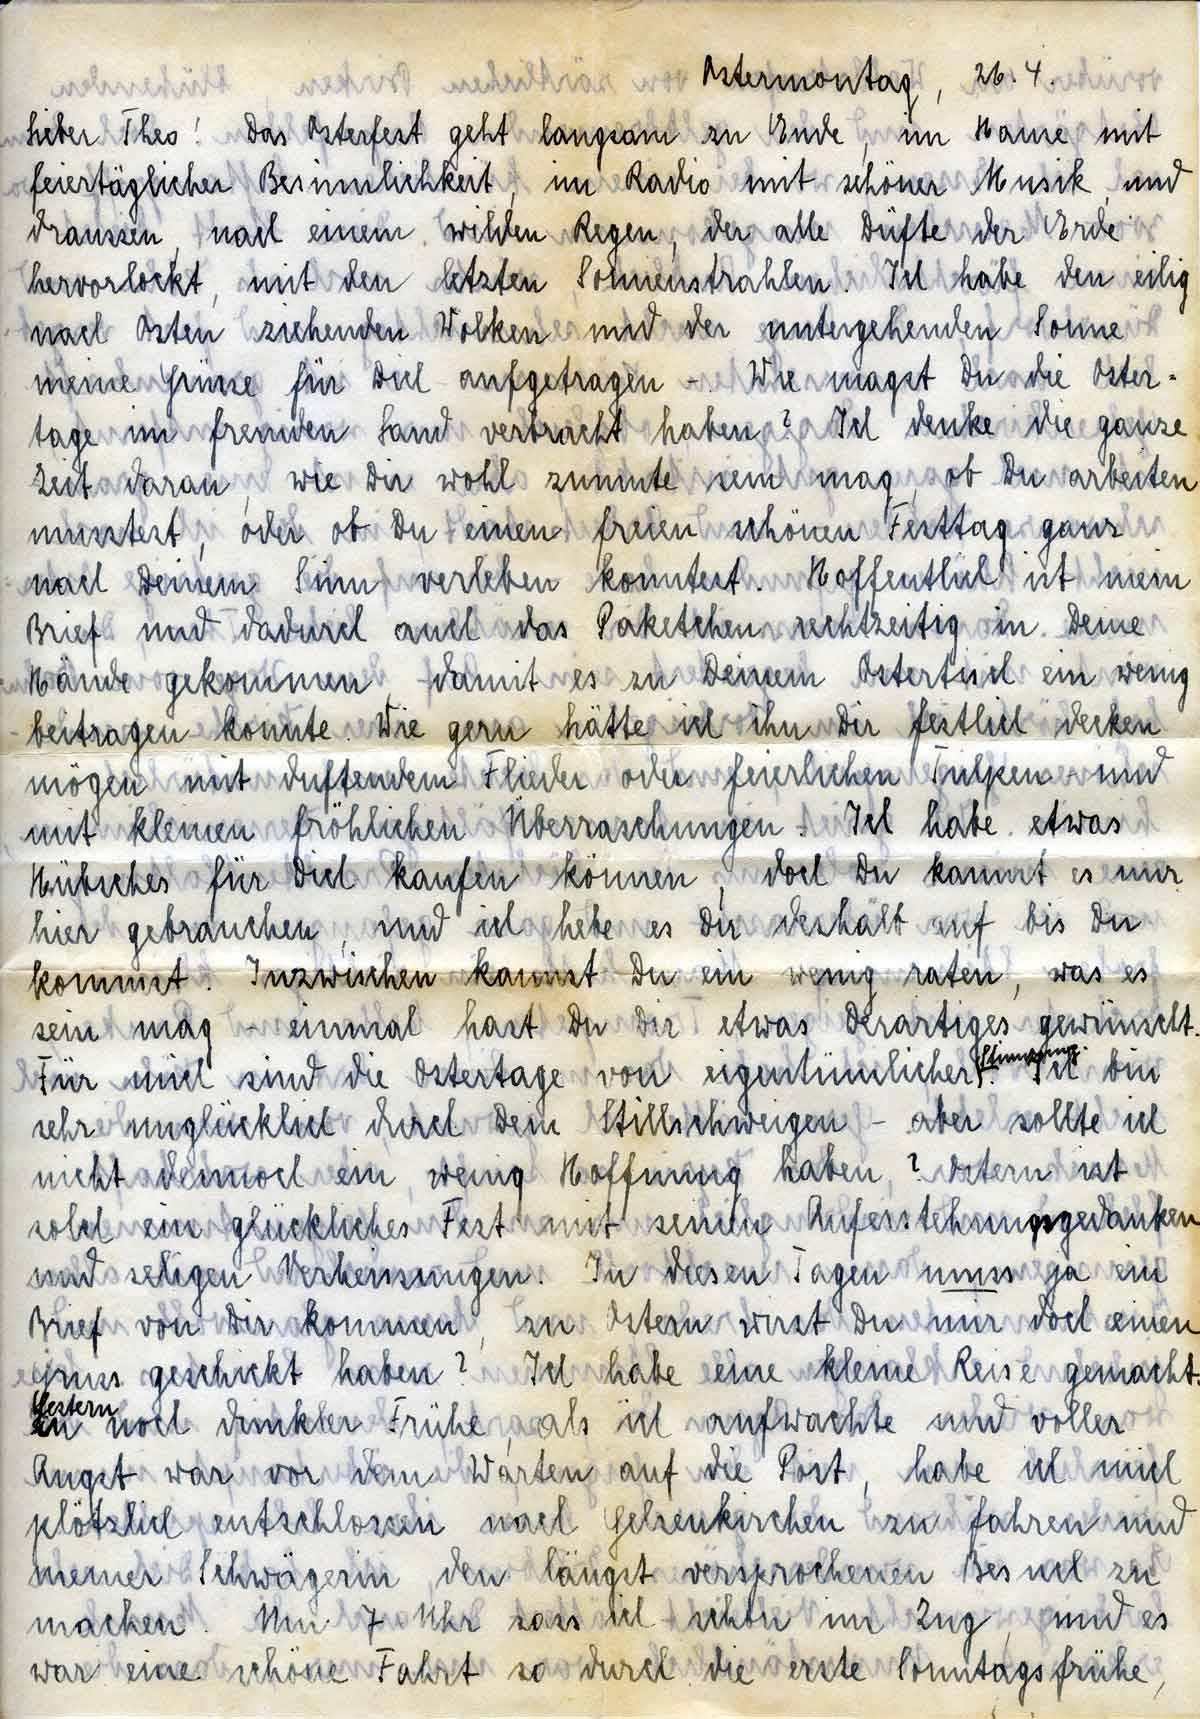 Ostermontag, 26.4.
Lieber Theo! Das Osterfest geht langsam zu Ende, im Hause mit
feiertäglicher Besinnlichkeit, im Radio mit schöner Musik und
draussen, nach einem wilden Regen, der alle Düfte der Erde
hervorlockt, mit den letzten Sonnenstrahlen. Ich habe den eilig
nach Osten ziehenden Wolken und der untergehenden Sonne
meine Grüsse für Dich aufgetragen -. Wie magst Du die Oster-
tage im fremden Land verbracht haben? Ich denke die ganze
Zeit daran, wie Dir wohl zumute sein mag, ob Du arbeiten
musstest, oder ob Du einen freien schönen Festtag ganz
nach Deinem Sinn verleben konntest. Hoffentlich ist mein
Brief und dadurch auch das Paketchen rechtzeitig in Deine
Hände gekommen, damit es zu Deinem Ostertisch ein wenig
beitragen konnte. Wie gern hätte ich ihn Dir festlich decken
mögen mit duftendem Flieder oder feierlichen Tulpen und
mit kleinen fröhlichen Überraschungen. Ich habe etwas
Hübsches für Dich kaufen können, doch Du kannst es nur
hier gebrauchen, und ich hebe es Dir deshalb auf bis Du
kommst. Inzwischen kannst Du ein wenig raten, was es
sein mag - einmal hast Du Dir etwas Derartiges gewünscht.
Für mich sind die Ostertage von eigentümlicher Stimmung. Ich bin
sehr unglücklich durch Dein Stillschweigen - aber sollte ich
nicht dennoch ein wenig Hoffnung haben? Ostern ist
solch ein glückliches Fest mit seinen Auferstehungsgedanken
und seligen Verheissungen. In diesen Tagen muss ja ein
Brief von Dir kommen, zu Ostern wirst Du mir doch einen
Gruss geschickt haben? Ich habe eine kleine Reise gemacht.
Gestern in noch dunkler Frühe, als ich aufwachte und voller
Angst war vor dem Warten auf die Post, habe ich mich
plötzlich entschlossen nach Gelsenkirchen zu fahren und
meiner Schwägerin den längst versprochenen Besuch zu
machen. Um 7 Uhr sass ich schon im Zug, und es
war eine schöne Fahrt so durch die erste Sonntagsfrühe,